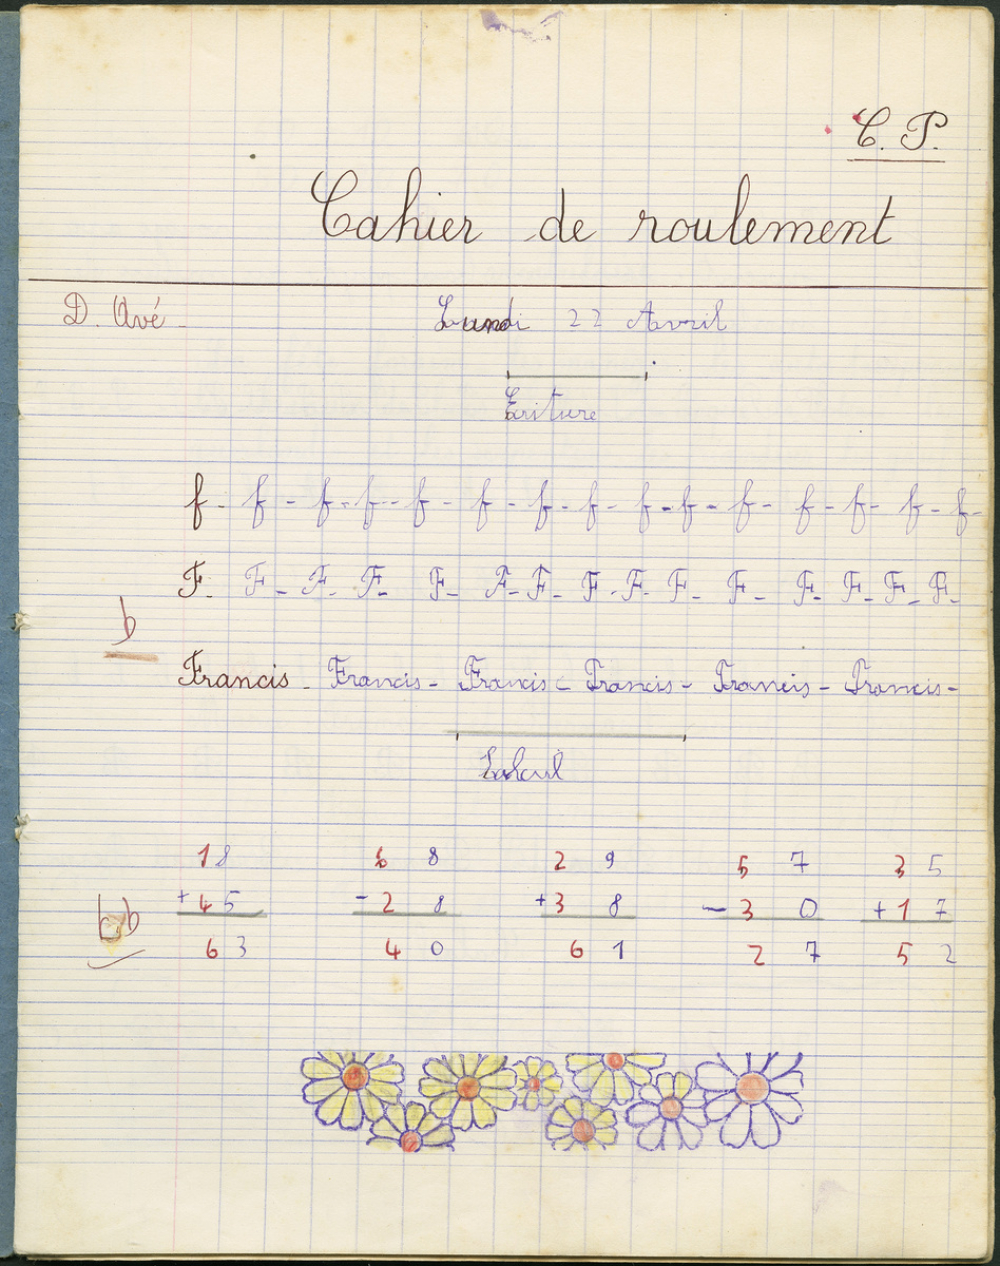 C. P.
Cahier de roulement
D. Avé - Lundi 22 Avril
Ecriture
f - f - f - f - f - f - f - f - f - f - f - f - f - f - f -
F - F - F - F - F - F - F - F - F - F - F - F - F - F - F -
b
Francis - Francis - Francis - Francis - Francis - Francis -
Calcul
18 68 29 57 35
+ 45 - 28 + 38 - 30 + 17
b
63 40 61 27 52